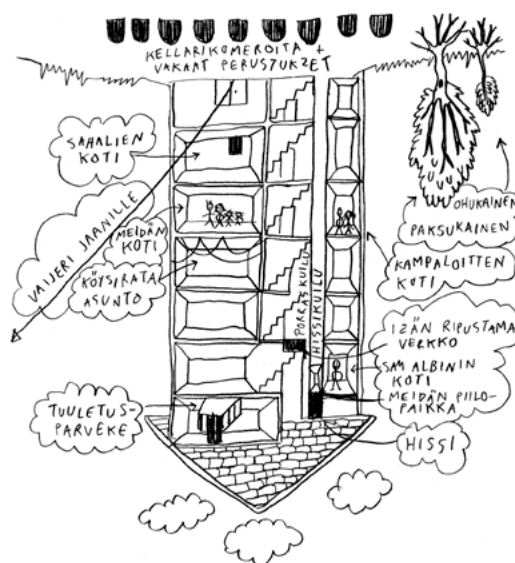 KELLARIKOMEROITA +
VAKAAT PERUSTUKZET
SAHALIEN
KOTI
VAIJERI JAANILLE
MEIDÄN
KOTI
KÖYSIRATA
ASUNTO
TUULETUS-
PARVEKE
PORRASKUILU
HISSIKUILU
OHUKAINEN
PAKSUKAINEN
KAMPALOITTEN
KOTI
IZÄN RIPUSTAMA
VERKKO
SAM ALBININ
KOTI
MEIDÄN PIILO-
PAIKKA
HISSI